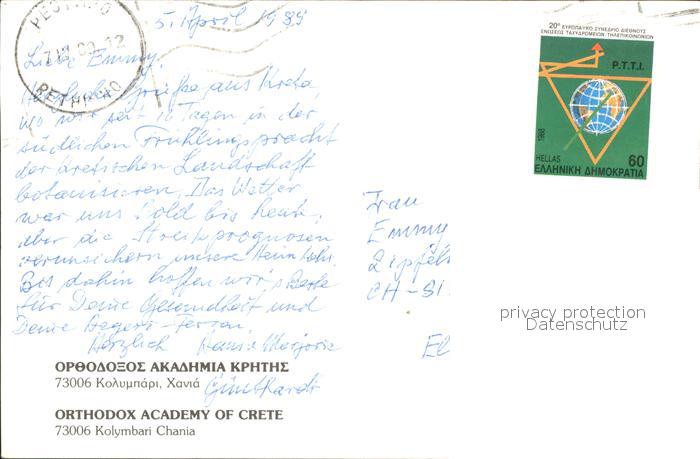 5. April 1989
Liebe Emmy!
Herzliche Grüsse aus Kreta,
wo wir seit 10 Tagen in der
südlichen Frühlingspracht
der kretischen Landschaft
botanisieren. Das Wetter
war uns hold bis heute,
aber die Streikprognosen
verunsichern unsere Heimkehr.
Bis dahin hoffen wir's Beste
für Deine Gesundheit und
Deine Aegeri-Ferien.
Herzlich Hans + Marjorie
ΟΡΘΟΔΟΞΟΣ ΑΚΑΔΗΜΙΑ ΚΡΗΤΗΣ
73006 Κολυμπάρι, Χανιά
ORTHODOX ACADEMY OF CRETE
73006 Kolymbari Chania
ΡΕΘΥΜΝΟ
RETHIMNO
20° ΕΥΡΩΠΑΪΚΟ ΣΥΝΕΔΡΙΟ ΔΙΕΘΝΟΥΣ
ΕΝΩΣΕΩΣ ΤΑΧΥΔΡΟΜΕΙΩΝ ΤΗΛΕΠΙΚΟΙΝΩΝΙΩΝ
P.T.T.I.
1988
HELLAS 60
ΕΛΛΗΝΙΚΗ ΔΗΜΟΚΡΑΤΙΑ
Frau
Emmy
CH-
privacy protection
Datenschutz